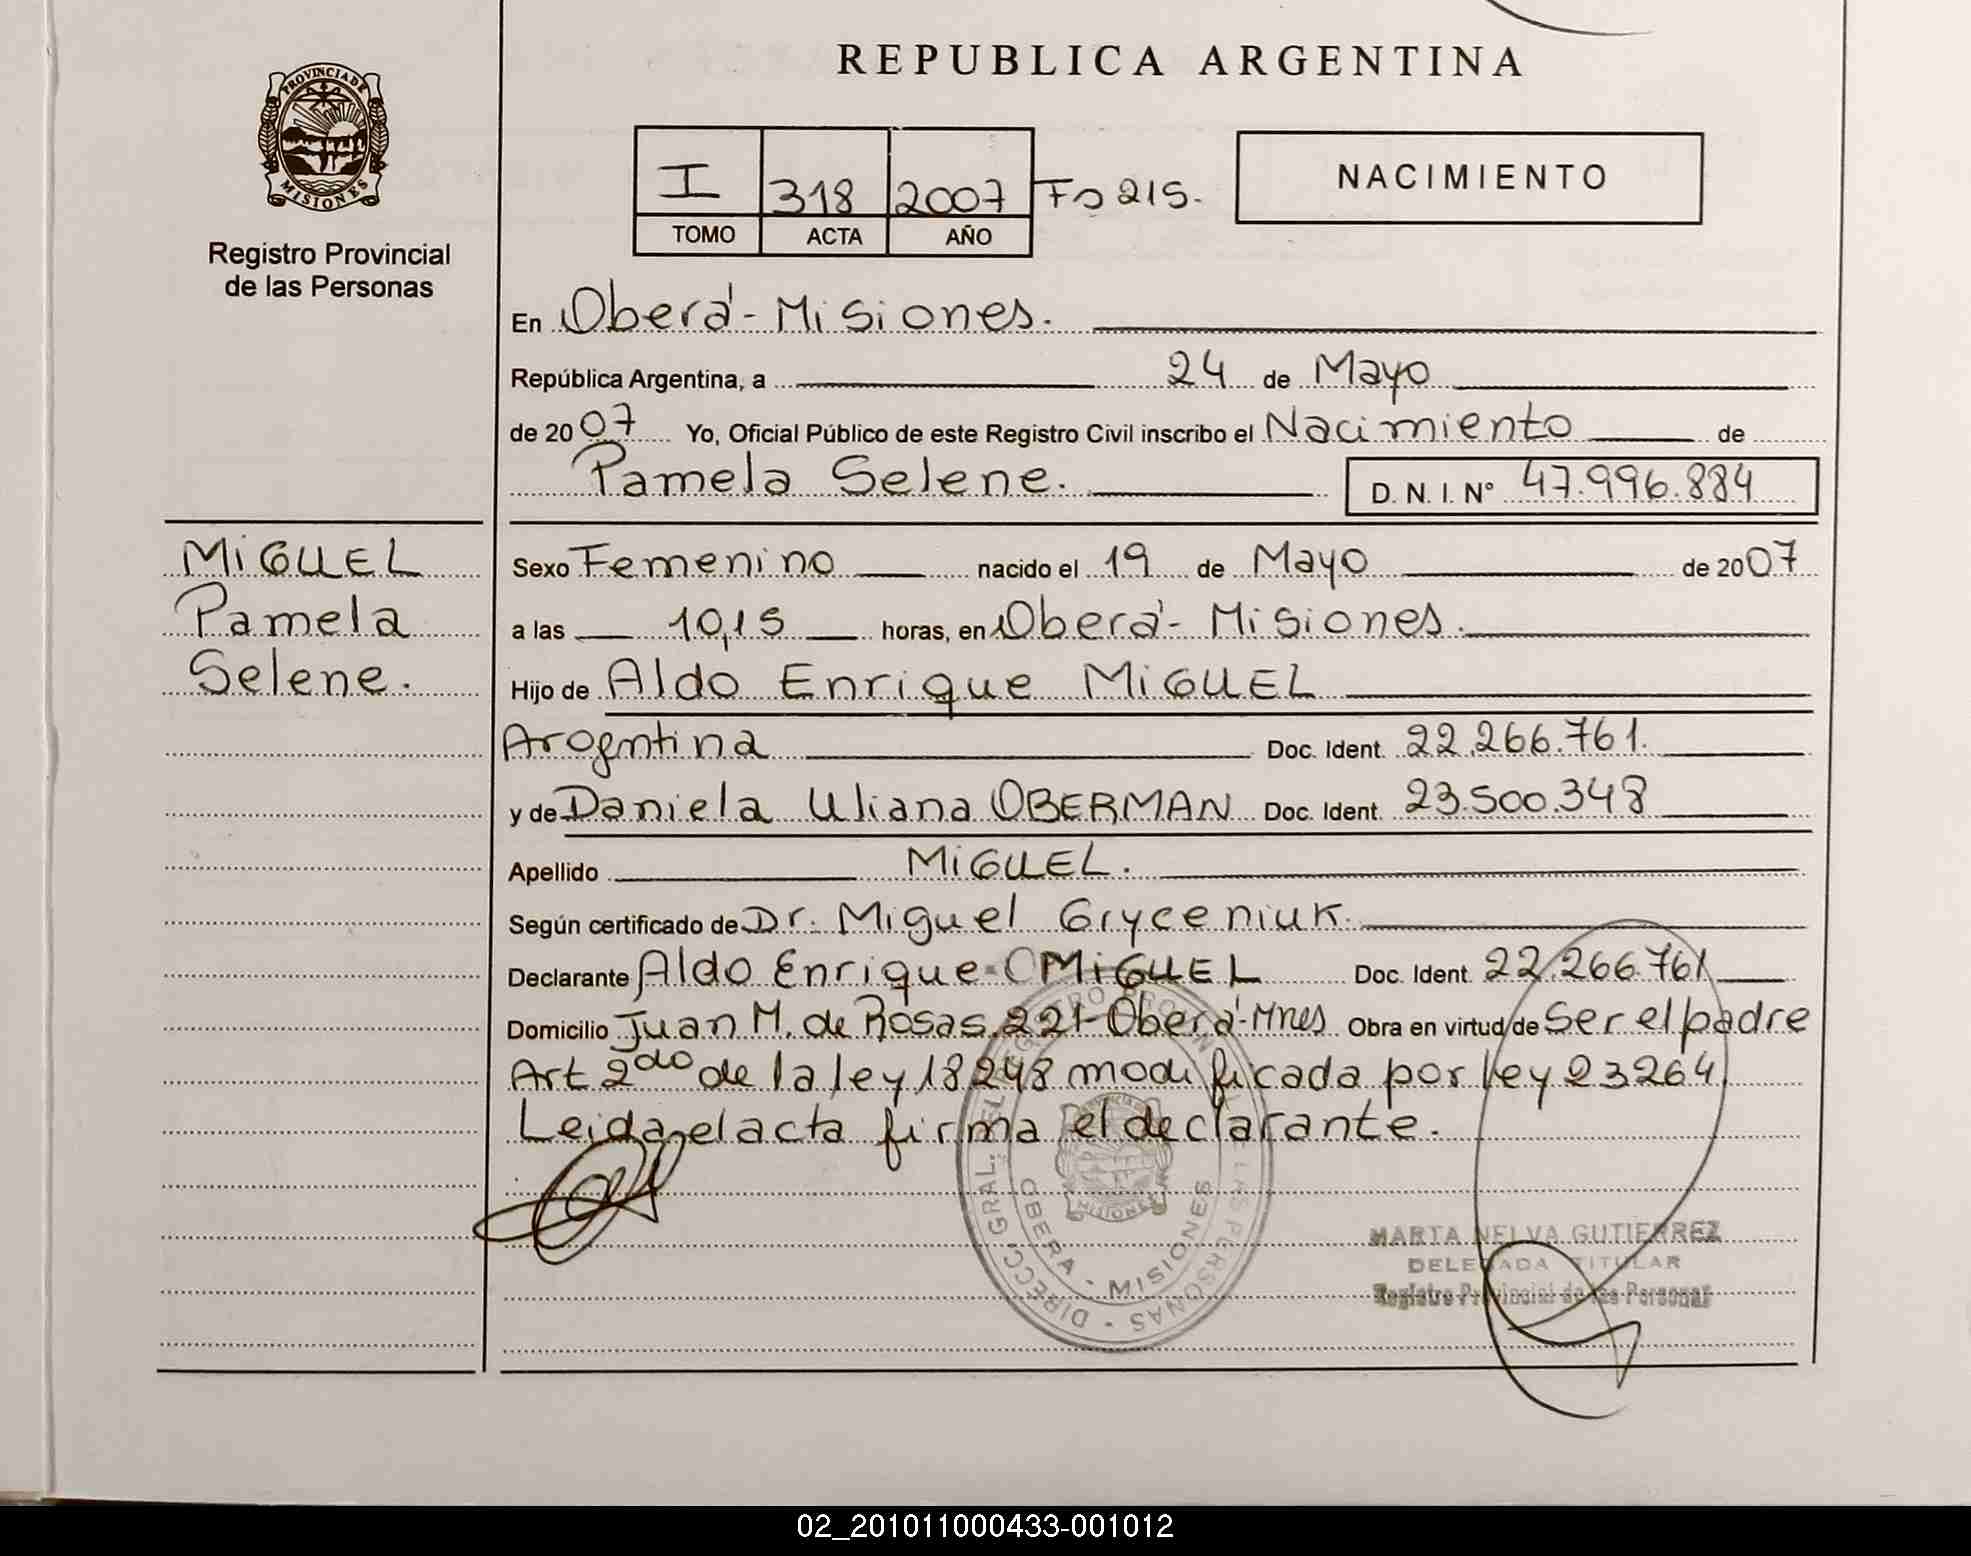 REPUBLICA ARGENTINA
PROVINCIA DE
MISIONES
Registro Provincial
de las Personas
I 318 2007 Fo 215.
TOMO ACTA AÑO
NACIMIENTO
En Oberá - Misiones.
República Argentina, a 24 de Mayo
de 2007 Yo, Oficial Público de este Registro Civil inscribo el Nacimiento de
Pamela Selene. D. N. I. Nº 47.996.884
MiGUEL
Pamela
Selene.
Sexo Femenino nacido el 19 de Mayo de 2007
a las 10,15 horas, en Oberá - Misiones.
Hijo de Aldo Enrique MiGUEL
Argentina Doc. Ident. 22.266.761.
y de Daniela Uliana OBERMAN Doc. Ident. 23.500.348
Apellido MiGUEL.
Según certificado de Dr. Miguel Gryceniuk.
Declarante Aldo Enrique MiGUEL Doc. Ident. 22.266.761
Domicilio Juan M. de Rosas 221 - Oberá - Mnes Obra en virtud de Ser el padre
Art 2do de la ley 18248 modificada por ley 23264
Leida el acta firma el declarante.
DIRECC. GRAL. DEL REGISTRO PROVINCIAL DE LAS PERSONAS
OBERA - MISIONES
MARTA NELVA GUTIERREZ
DELEGADA TITULAR
Registro Provincial de las Personas
02_201011000433-001012